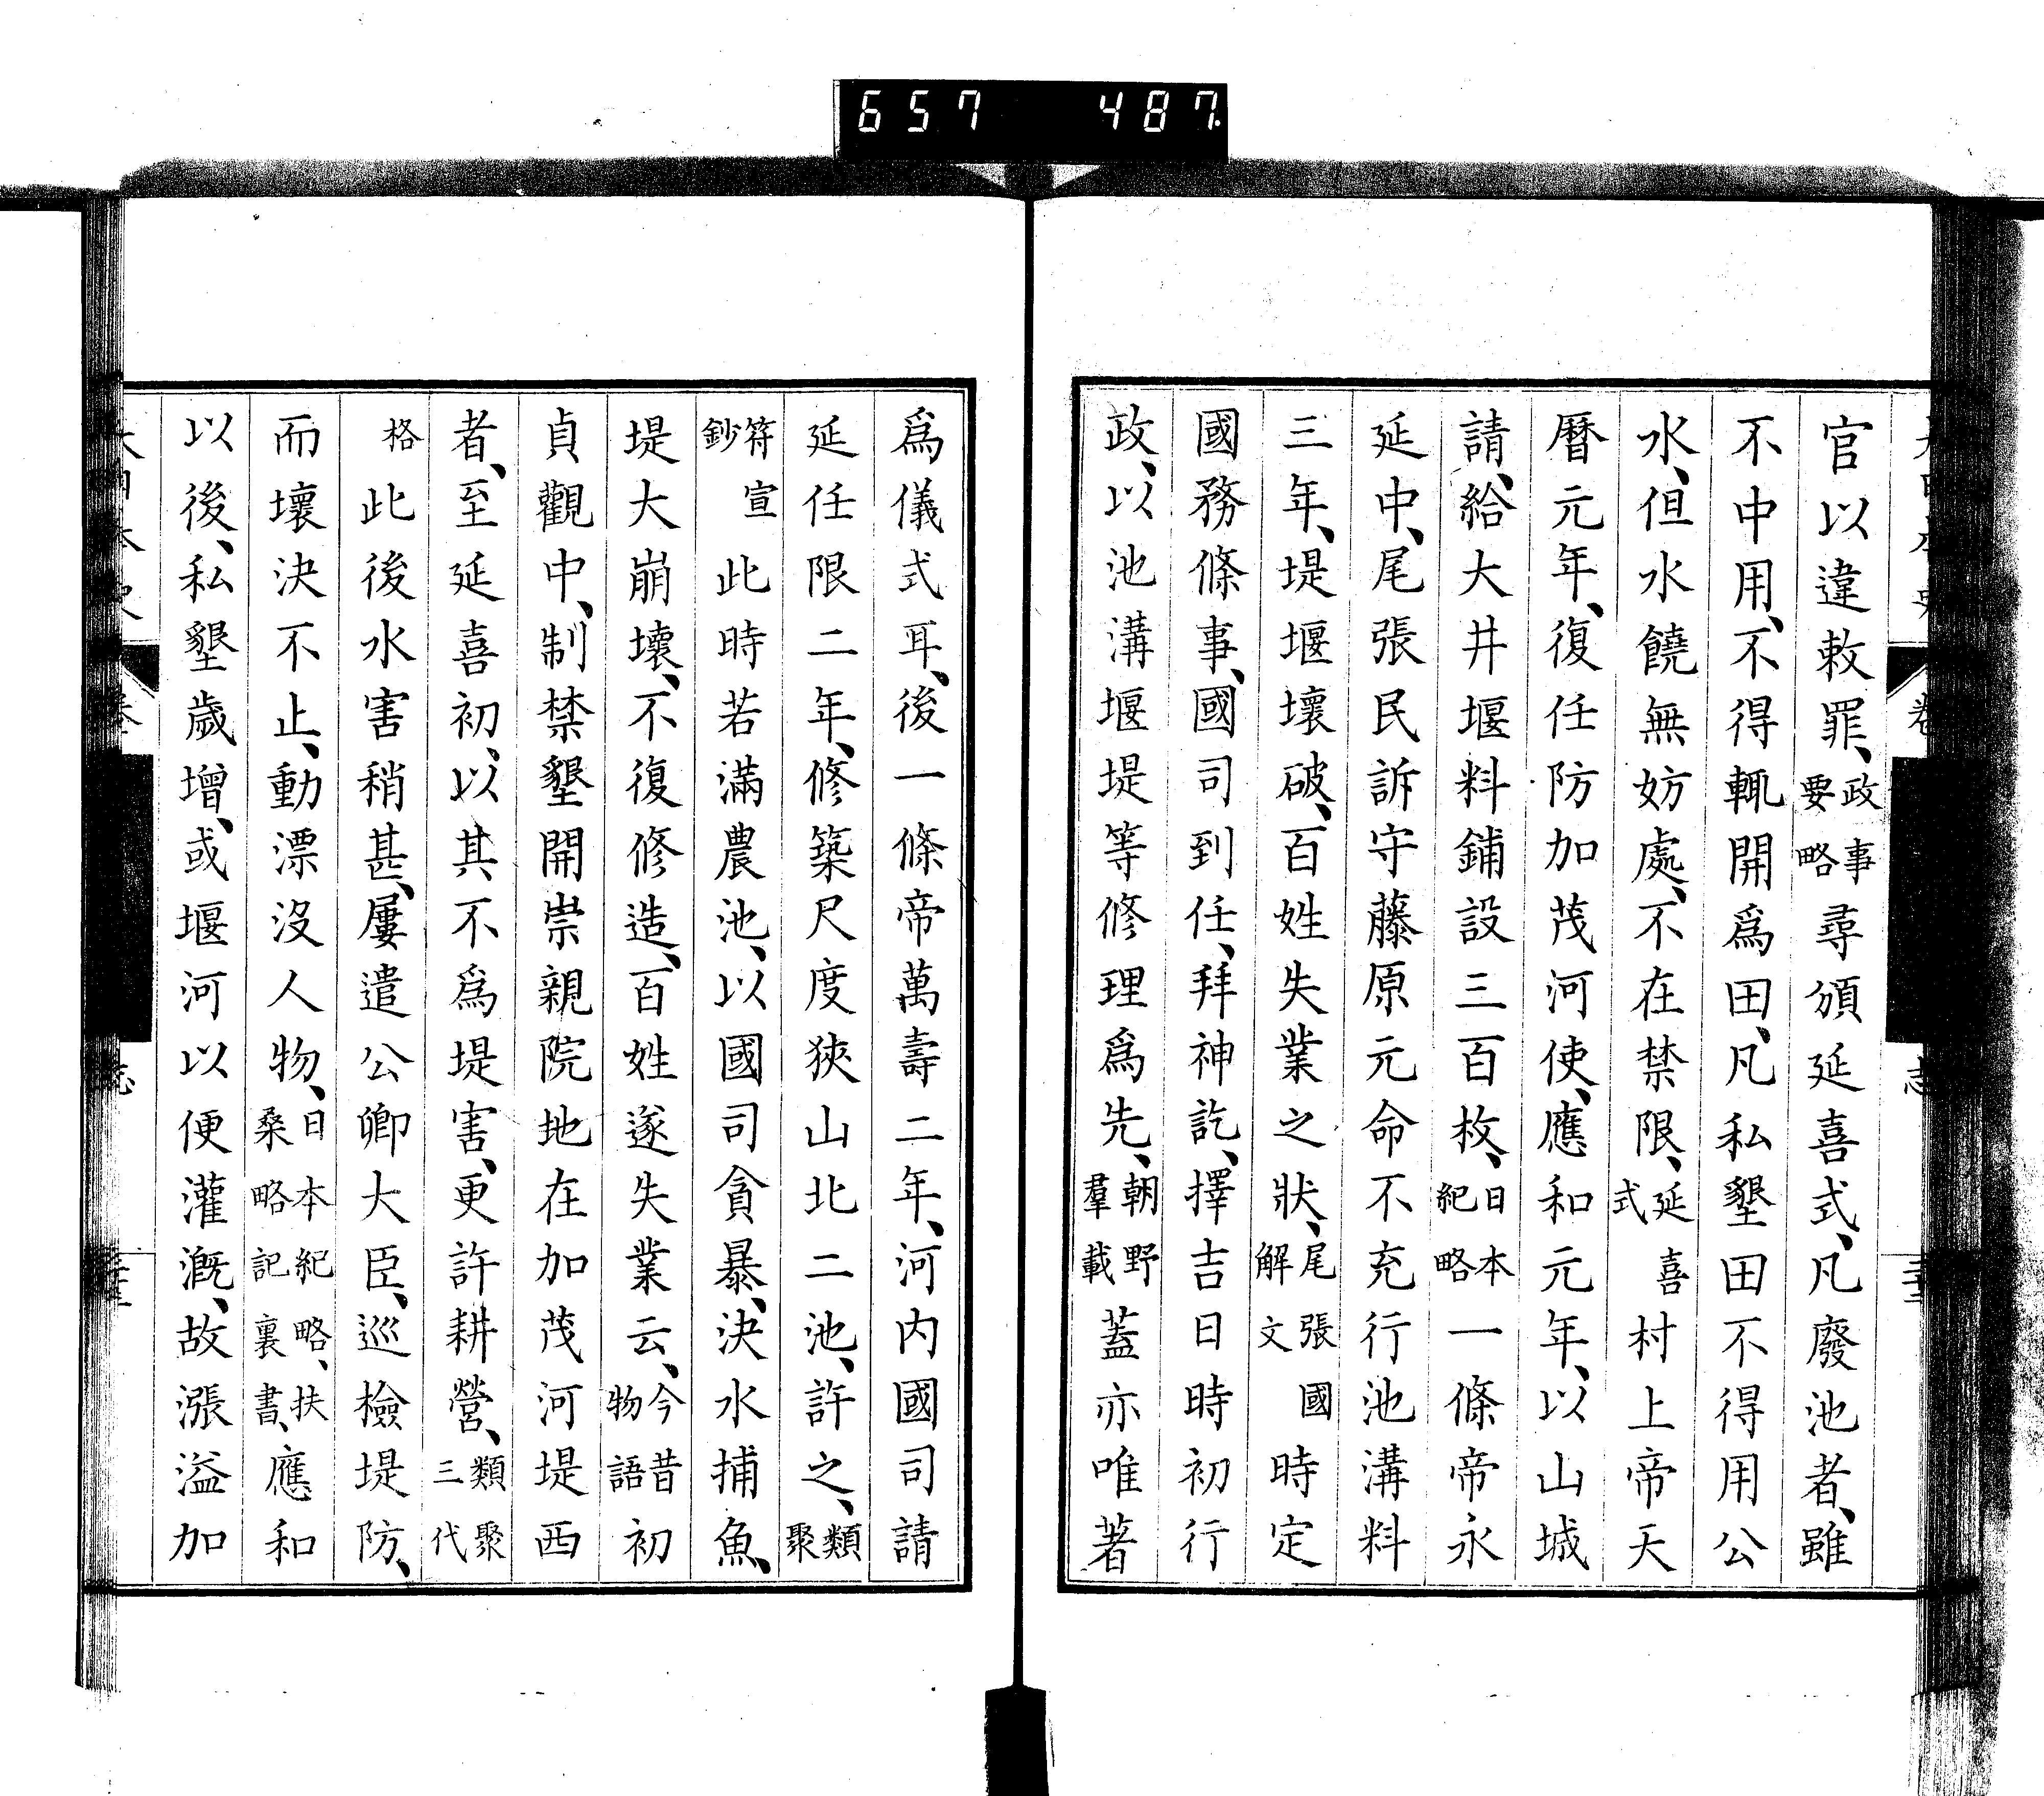 657 487
官以違敕罪、政事要略尋頒延喜式、凡廢池者、雖
不中用、不得輒開爲田、凡私墾田不得用公
水、但水饒無妨處、不在禁限、延喜式村上帝天
曆元年、復任防加茂河使、應和元年、以山城
請、給大井堰料鋪設三百枚、日本紀略一條帝永
延中、尾張民訴守藤原元命不充行池溝料
三年、堤堰壞破、百姓失業之狀、尾張國解文時定
國務條事、國司到任、拜神訖、擇吉日時初行
政、以池溝堰堤等修理爲先、朝野羣載蓋亦唯著
爲儀式耳、後一條帝萬壽二年、河内國司請
延任限二年、修築尺度狹山北二池、許之、類聚
符宣鈔此時若滿農池、以國司貪暴、決水捕魚、
堤大崩壞、不復修造、百姓遂失業云、今昔物語初
貞觀中、制禁墾開崇親院地在加茂河堤西
者、至延喜初、以其不爲堤害、更許耕營、類聚三代
格此後水害稍甚、屢遣公卿大臣、巡檢堤防、
而壞決不止、動漂沒人物、日本紀略、扶桑略記裏書、應和
以後、私墾歲增、或堰河以便灌漑、故漲溢加